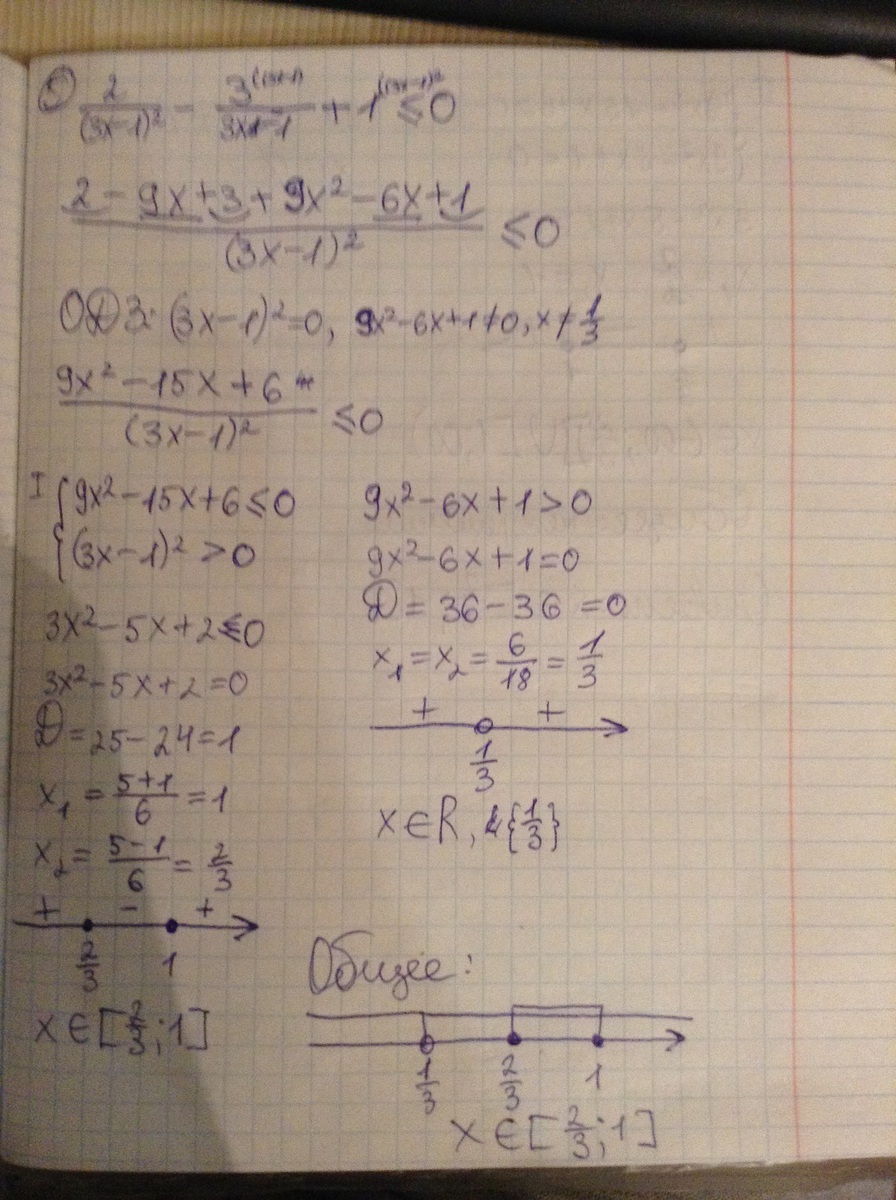 5) 2/(3x-1)² - 3^((3x-1))/(3x-1) + 1^((3x-1)²) ≤0
(2 - 9x+3+9x²-6x+1)/(3x-1)² ≤0
ОДЗ: (3x-1)²=0, 9x²-6x+1≠0, x≠1/3
(9x²-15x+6)/(3x-1)² ≤0
I { 9x²-15x+6≤0
{ (3x-1)²>0
3x²-5x+2≤0
3x²-5x+2=0
D=25-24=1
x₁ = (5+1)/6 = 1
x₂ = (5-1)/6 = 2/3
+ - +
2/3 1
x∈[2/3;1]
9x²-6x+1>0
9x²-6x+1=0
D=36-36=0
x₁=x₂=6/18=1/3
+ +
1/3
x∈R, {1/3}
Общее:
1/3 2/3 1
x∈[2/3;1]